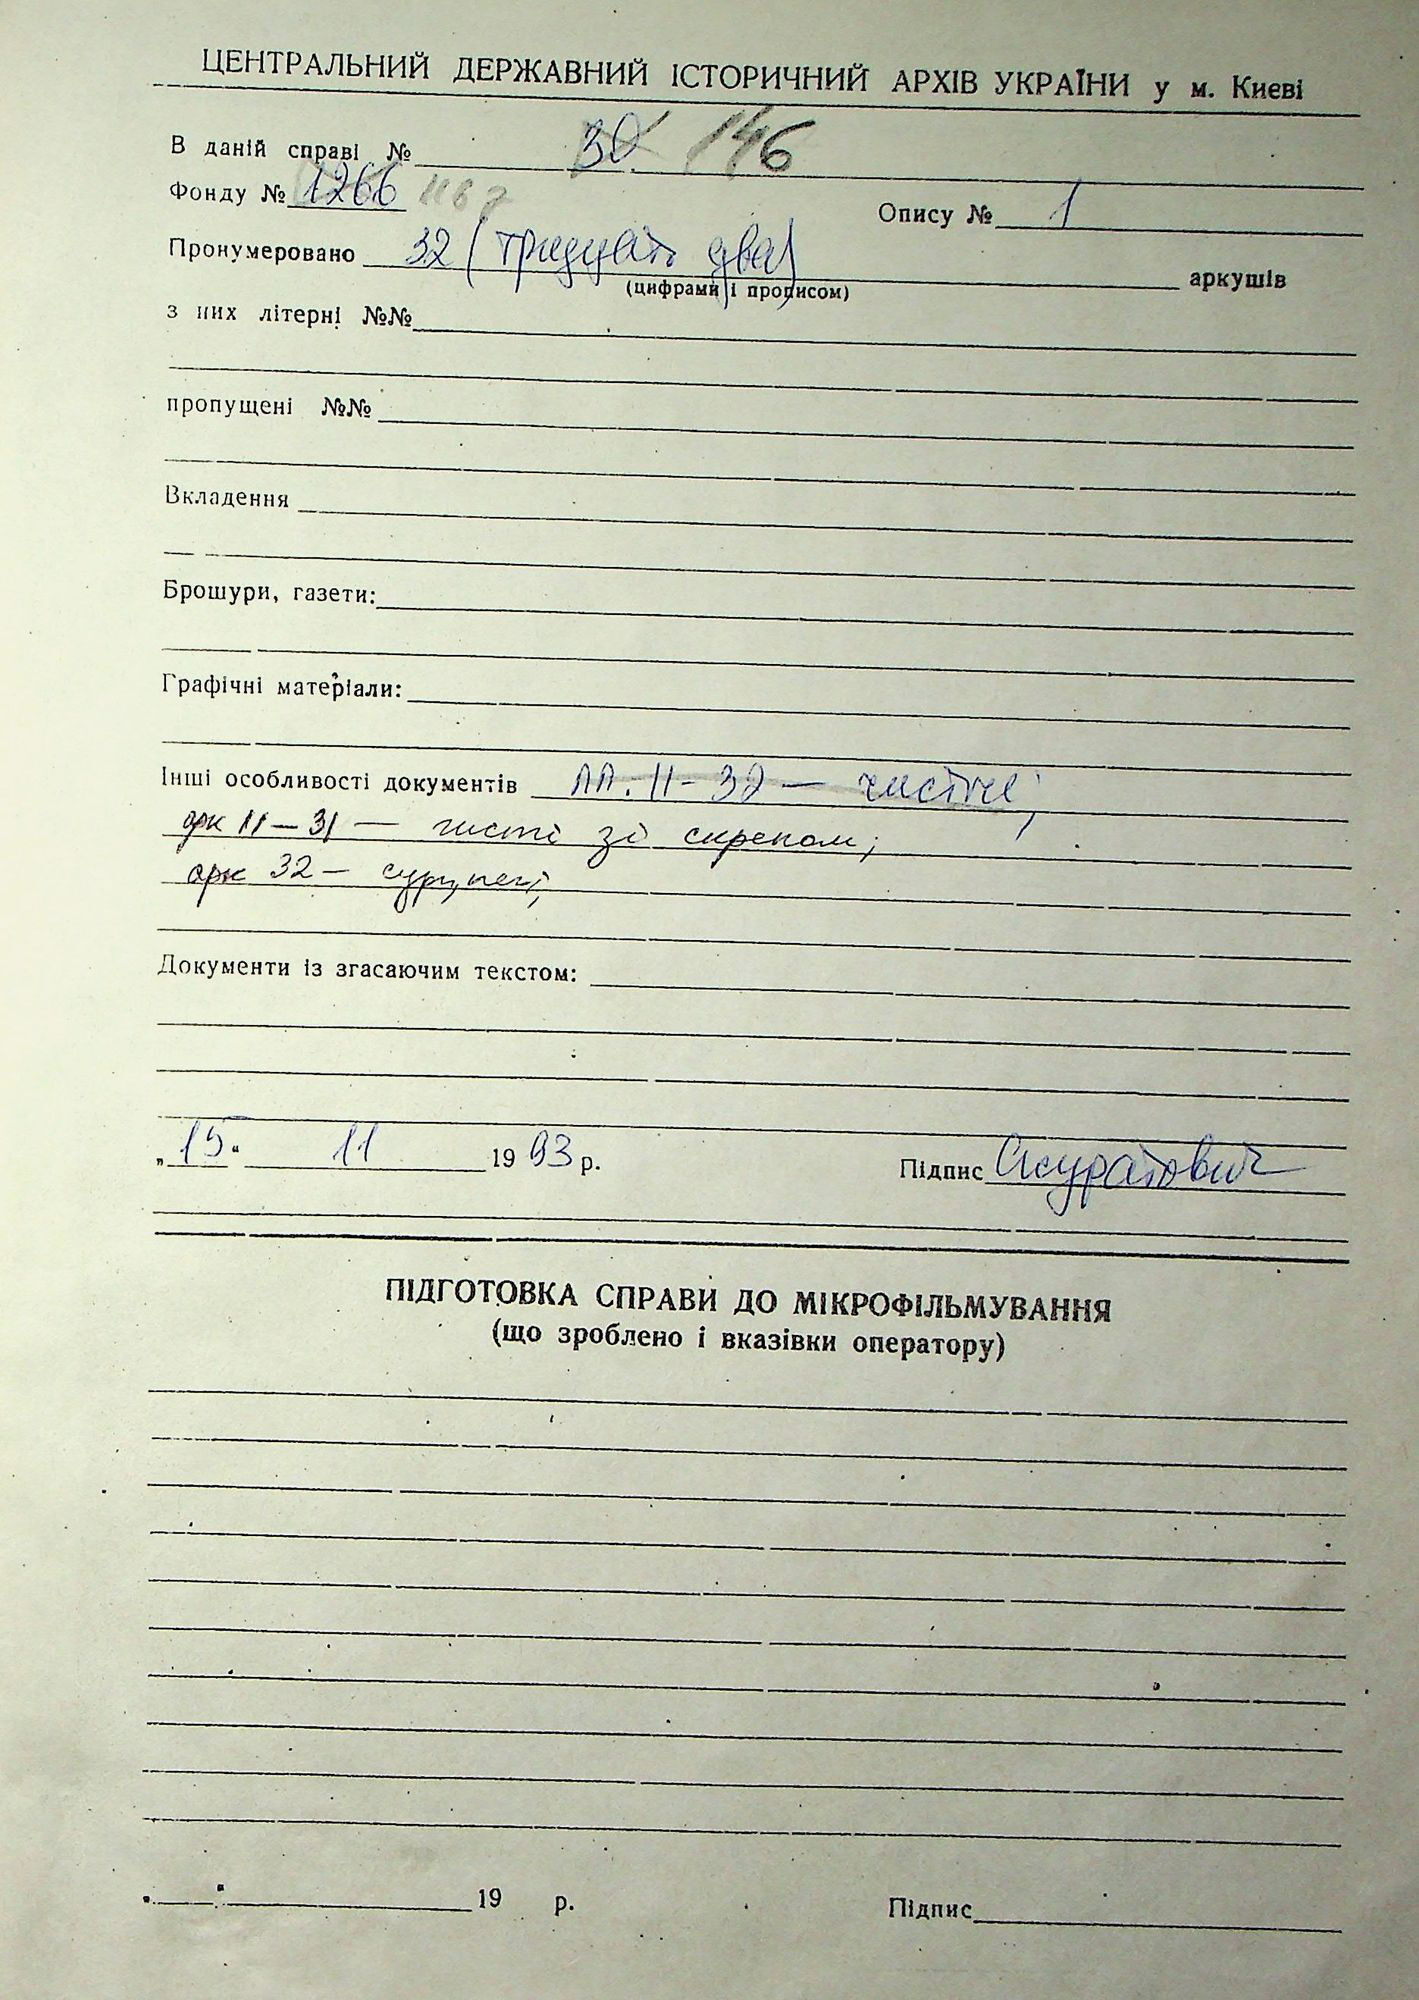 ЦЕНТРАЛЬНИЙ ДЕРЖАВНИЙ ІСТОРИЧНИЙ АРХІВ УКРАЇНИ у м. Києві
В даній справі № 30 146
Фонду № 1266 1167
Опису № 1
Пронумеровано 32 (тридцять два) аркушів
(цифрами і прописом)
з них літерні №№
пропущені №№
Вкладення
Брошури, газети:
Графічні матеріали:
Інші особливості документів 11-32 — чисті;
арк 11-31 — чисті зі скрепом;
арк 32 —
Документи із згасаючим текстом:
„15“ 11 1993 р. Підпис Скуратович
ПІДГОТОВКА СПРАВИ ДО МІКРОФІЛЬМУВАННЯ
(що зроблено і вказівки оператору)
19 р. Підпис